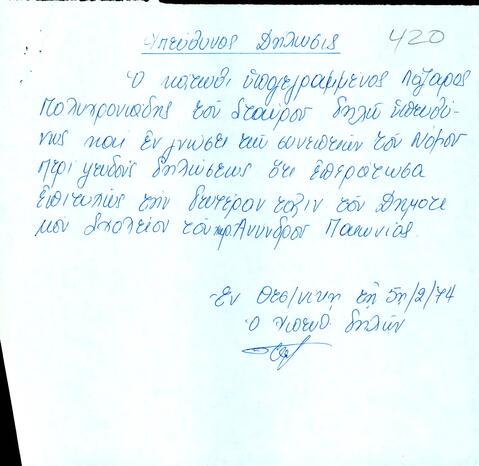 Ὑπεύθυνος Δήλωσις
420
Ὁ κάτωθι ὑπογεγραμμένος Λάζαρος
Πολυχρονιάδης τοῦ Σταύρου δηλῶ ὑπευθύ-
νως καὶ ἐν γνώσει τῶν συνεπειῶν τοῦ Νόμου
περὶ ψευδοῦς δηλώσεως ὅτι ἐπεράτωσα
ἐπιτυχῶς τὴν δευτέραν τάξιν τοῦ Δημοτι
κοῦ Σχολείου τοῦ χωρ. Ἀνύνδρου Παιονίας.
Ἐν Θεσ/νίκῃ τῇ 5ῃ/2/74
Ὁ ὑπευθ. δηλῶν